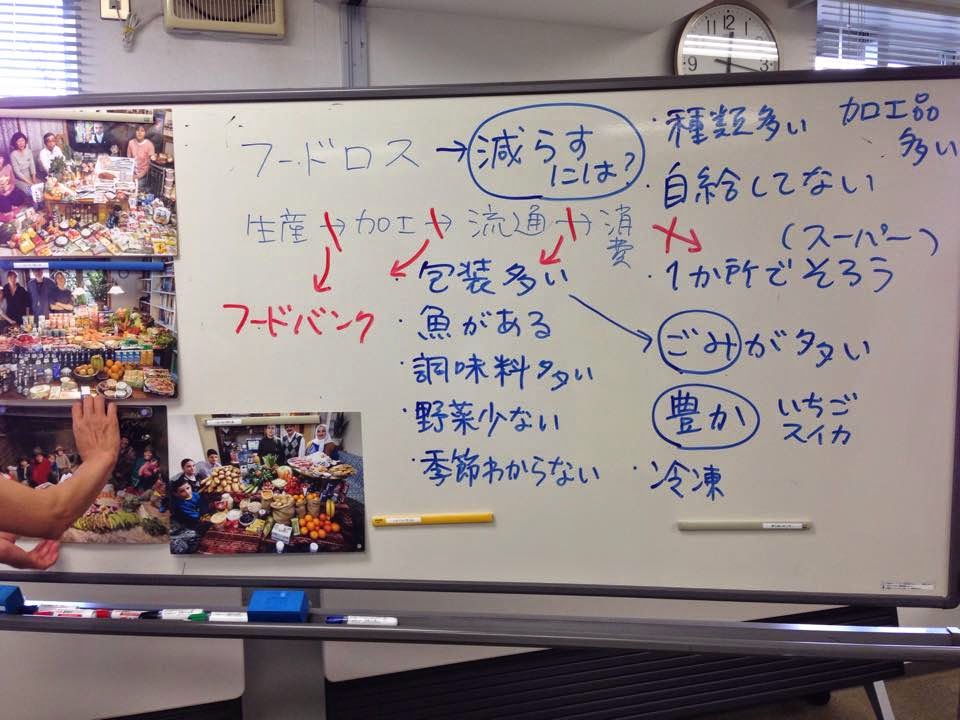 フードロス → 減らす
には?
生産 → 加工 → 流通 → 消
費
フードバンク
・包装多い
・魚がある
・調味料多い
・野菜少ない
・季節わからない
・種類多い
加工品
多い
・自給してない
(スーパー)
・1か所でそろう
ごみが多い
豊か
いちご
スイカ
・冷凍
12
9
3